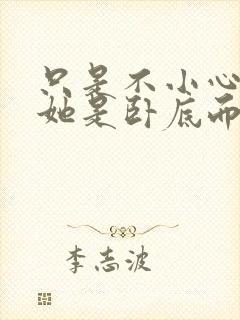 只是不小心
她是卧底而
李志波